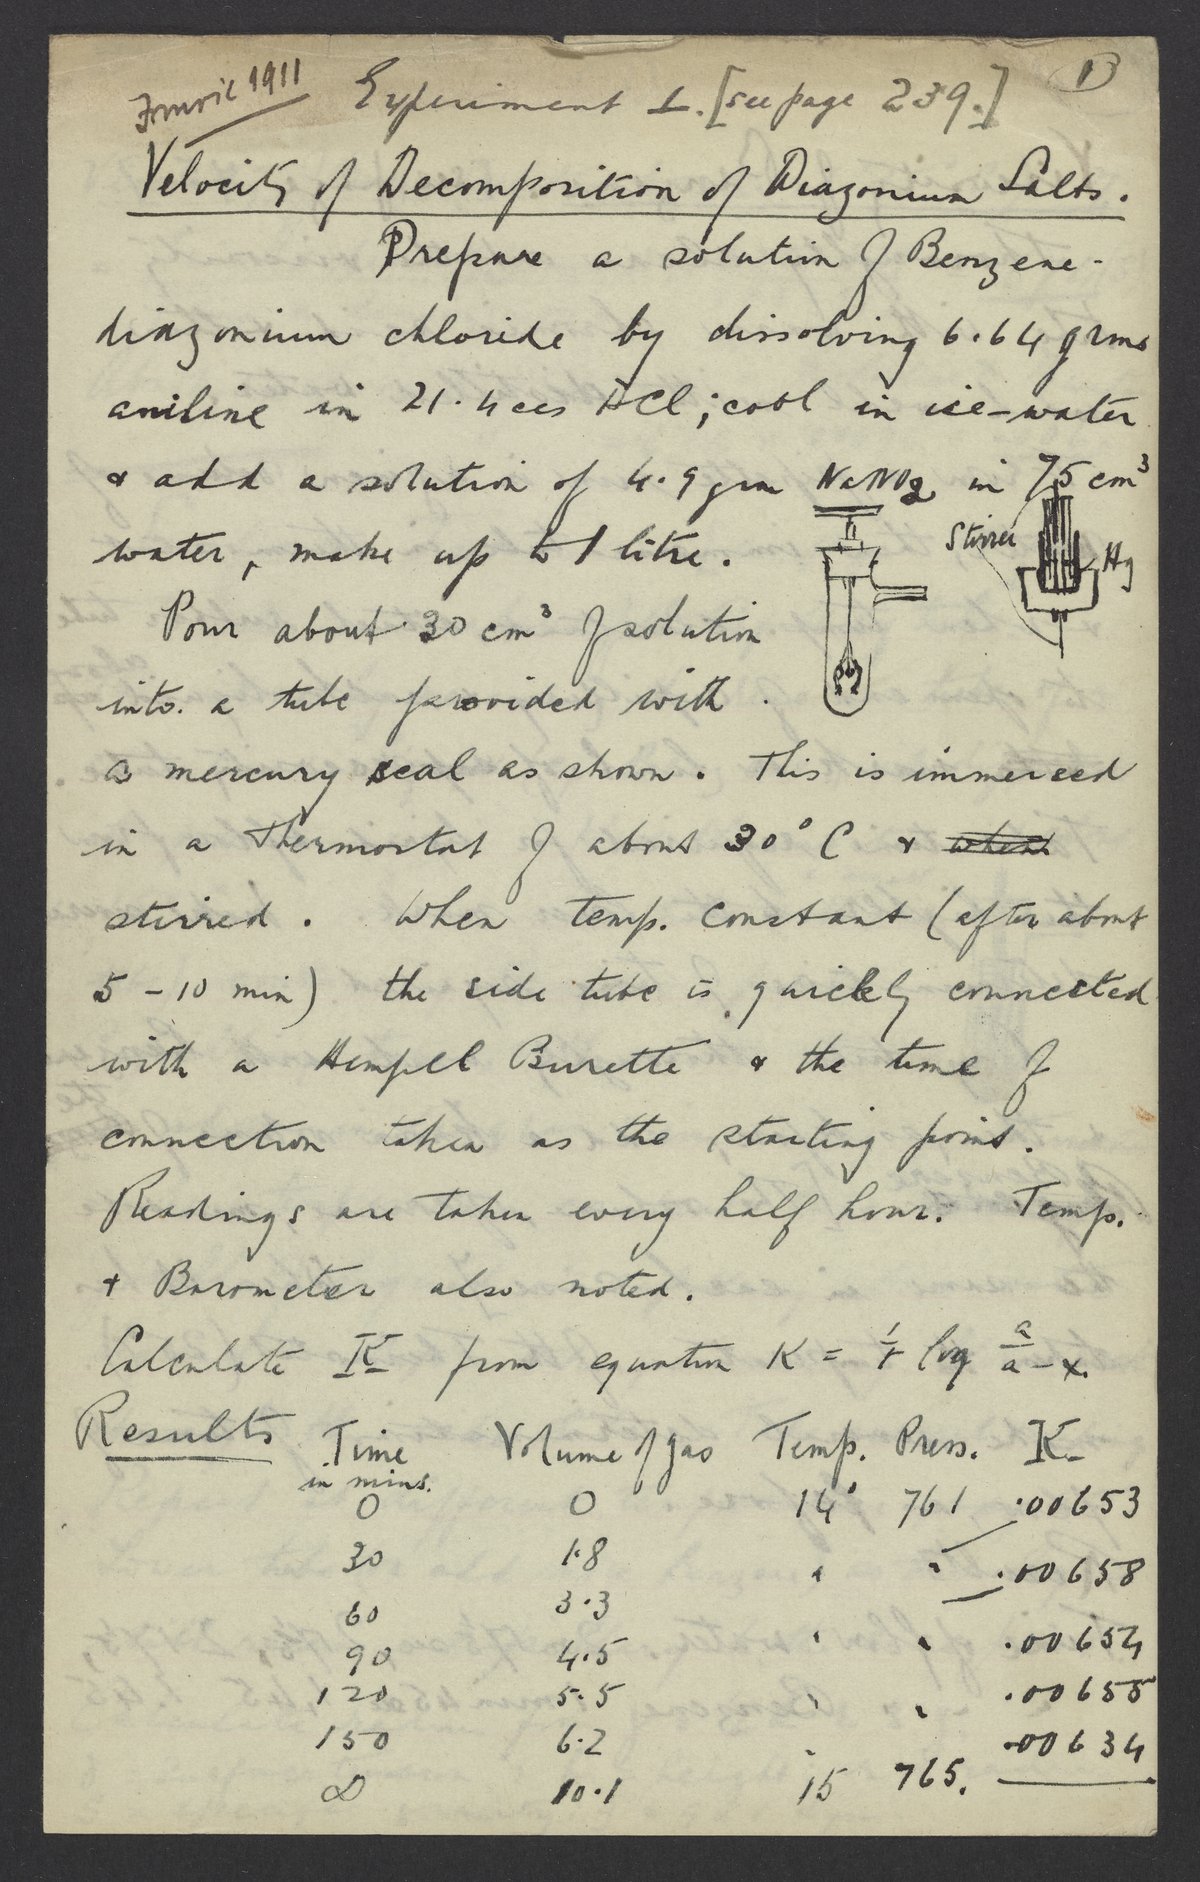 1911
Experiment 1. [see page 239.]
1
Velocity of Decomposition of Diazonium Salts.
Prepare a solution of Benzene-
diazonium chloride by dissolving 6.64 grms
aniline in 21.4 ccs HCl; cool in ice-water
& add a solution of 4.9 grm NaNO2 in 75 cm³
water, make up to 1 litre.
Stirrer
Hg
Pour about 30 cm³ of solution
into a tube provided with
a mercury seal as shown. This is immersed
in a Thermostat of about 30° C & when
stirred. When temp. constant (after about
5-10 min) the side tube is quickly connected
with a Hempel Burette & the time of
connection taken as the starting point.
Readings are taken every half hour. Temp.
& Barometer also noted.
Calculate K from equation K = 1/t log a/a-x.
Results Time in mins. Volume of gas Temp. Press. K
0 0 14° 761 .00653
30 1.8 " " .00658
60 3.3
90 4.5 " " .00654
120 5.5 " " .00655
150 6.2 " .00634
∞ 10.1 15 765.